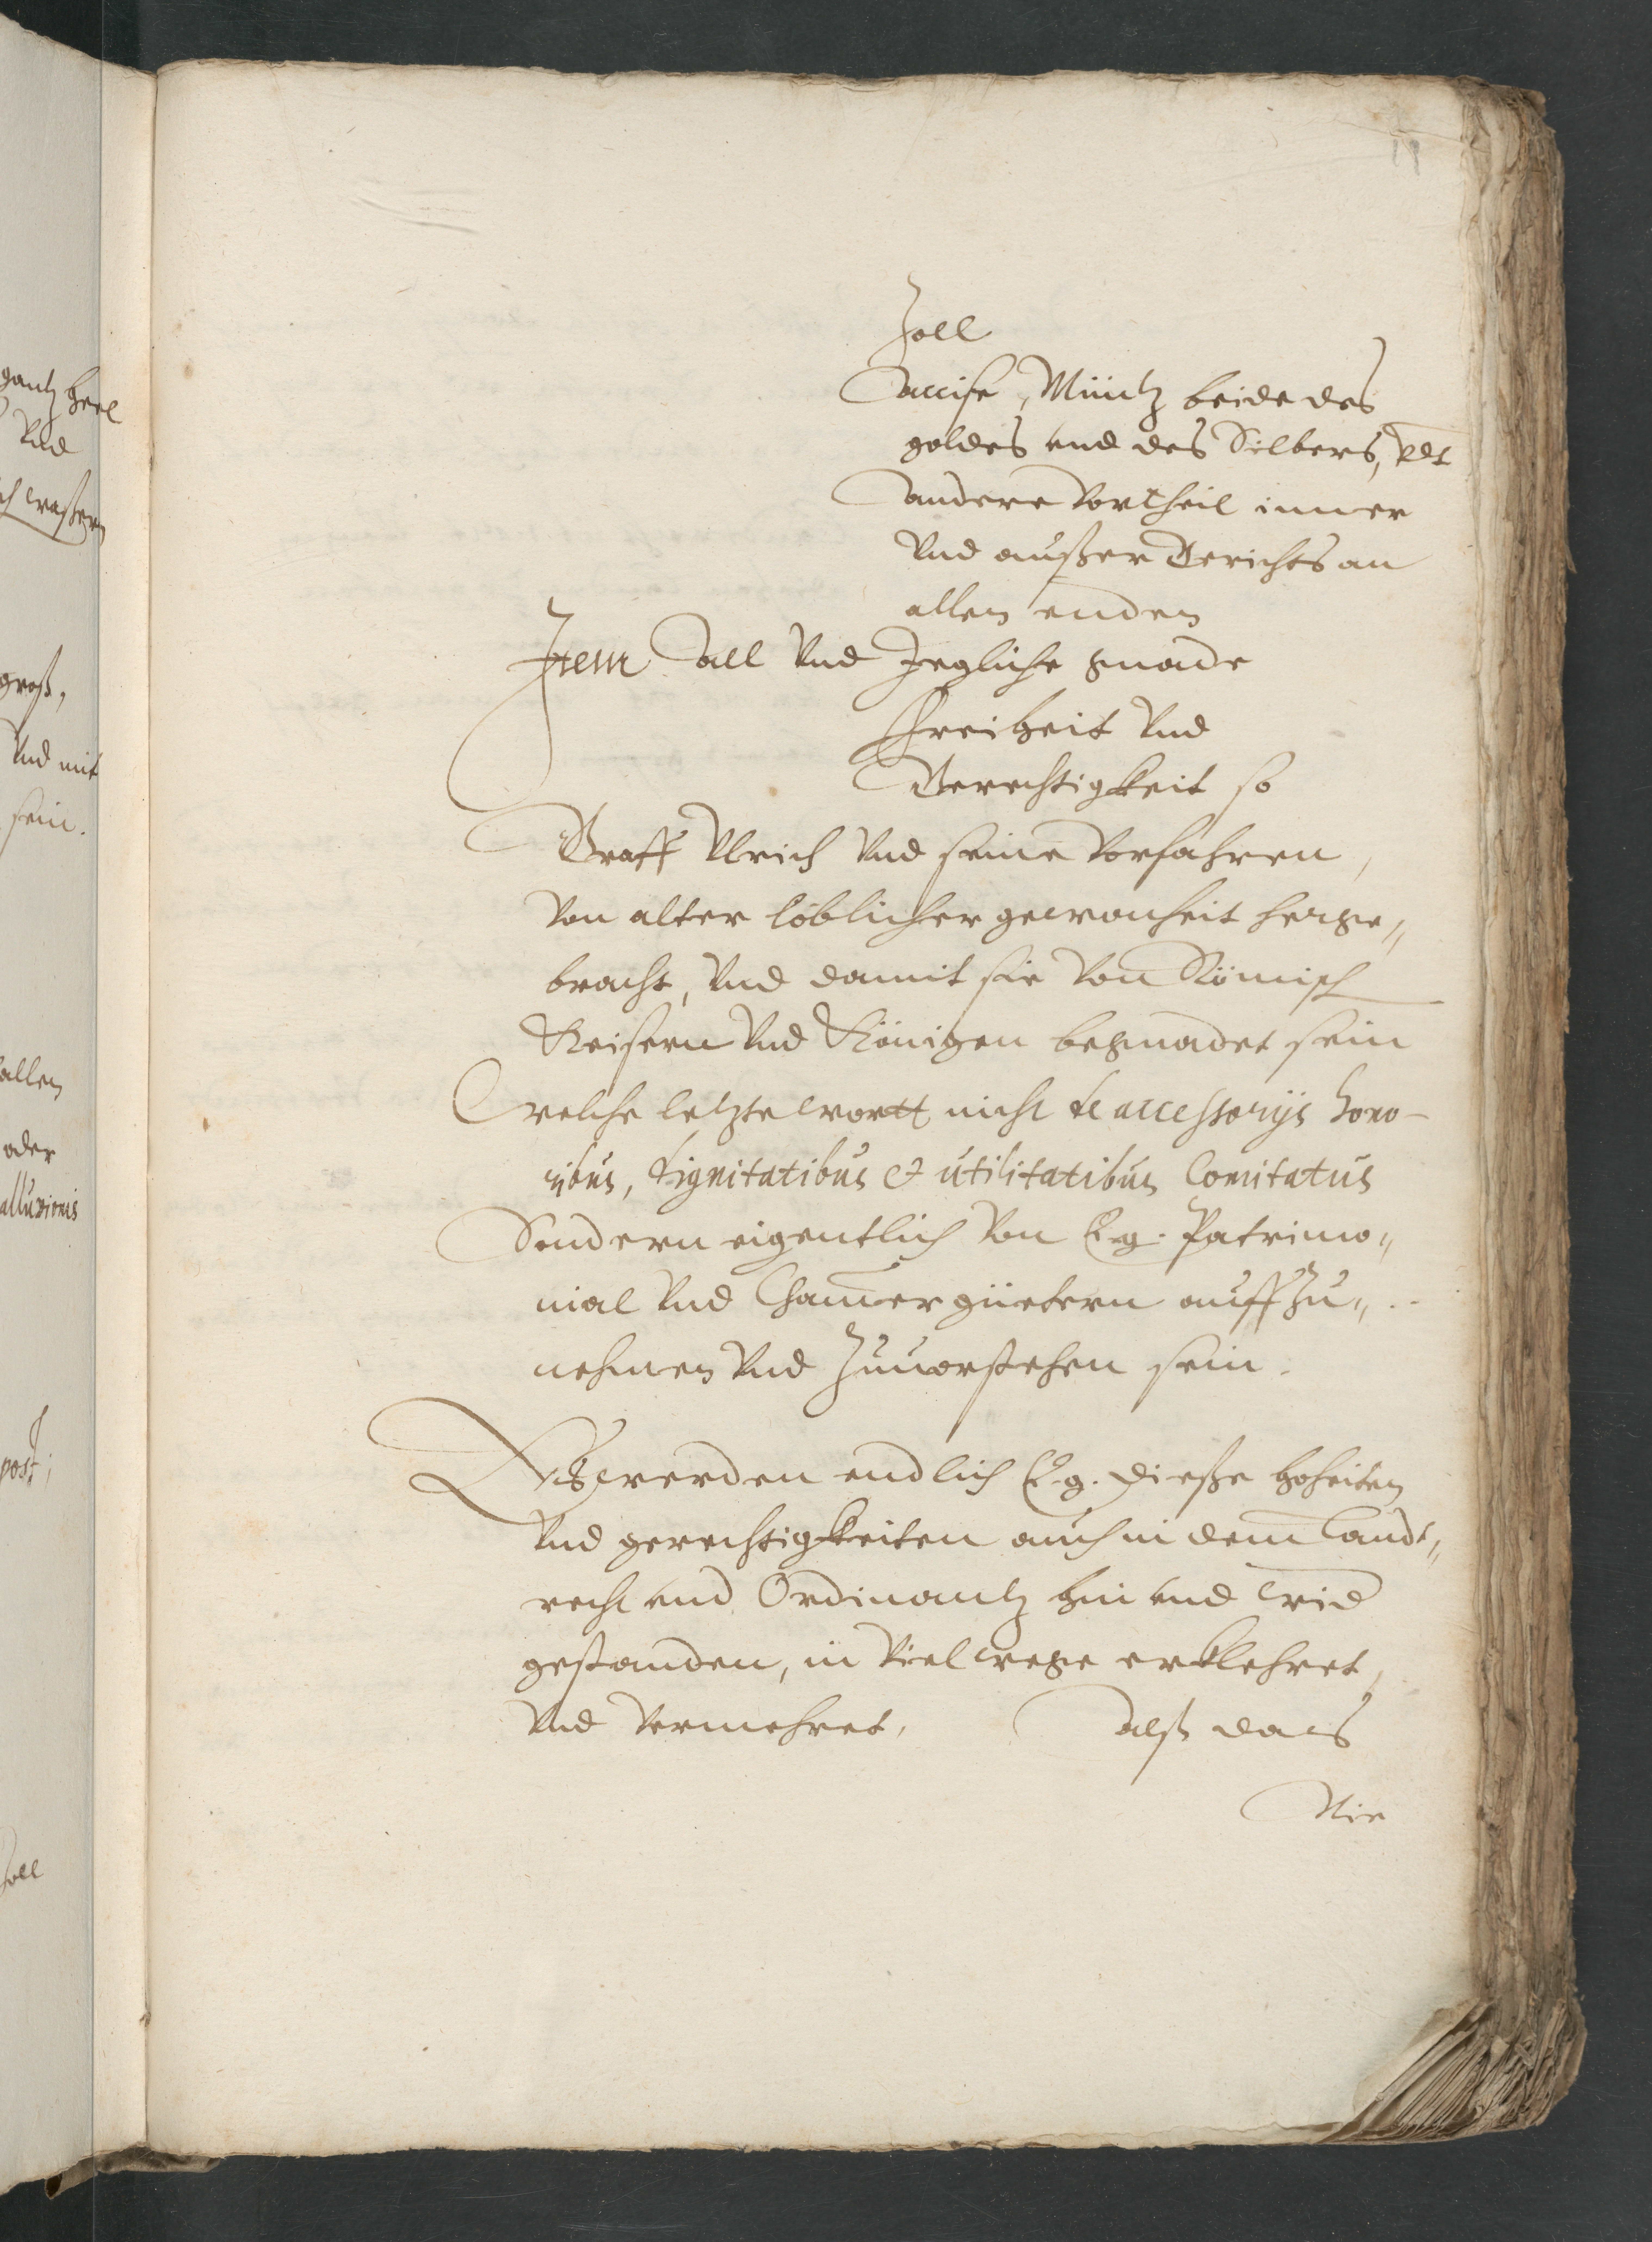 19
Zoll
Accise, Müntz beide des
goldes vnd des Silbers, vndt
andere Vortheil inner
Vnd außer Gerichts an
allen enden
Item All Vnd Jegliche gnade
Freiheit Vnd
Gerechtigkeit so
Graff Vlrich Vnd seine Vorfahren,
Von alter löblicher gewonheit herge„
bracht, Vnd damit sie Von Römisch
Keisern Vnd Königen begnadet sein
Welche letzte wortt nicht de accessorijs hono-
ribus, dignitatibus et utilitatibus Comitatus
Sondern eigentlich Von E. g. Patrimo„
nial Vnd Cham̄er güetern auff Zu„
nehmen Vnd Zuuorstehen sein.
Es werden endlich E. g. diesse hoheiten
Vnd gerechtigkeiten auch in dem Landt„
recht vnd Ordinantz hin vnd wid
gestanden, in Viel wege erklehret,
Vnd Vermehret, Alß das
Nie
gantz
Vnd
groß,
Vnd mit
sein.
allen
oder
alluvionis
post;
Zoll